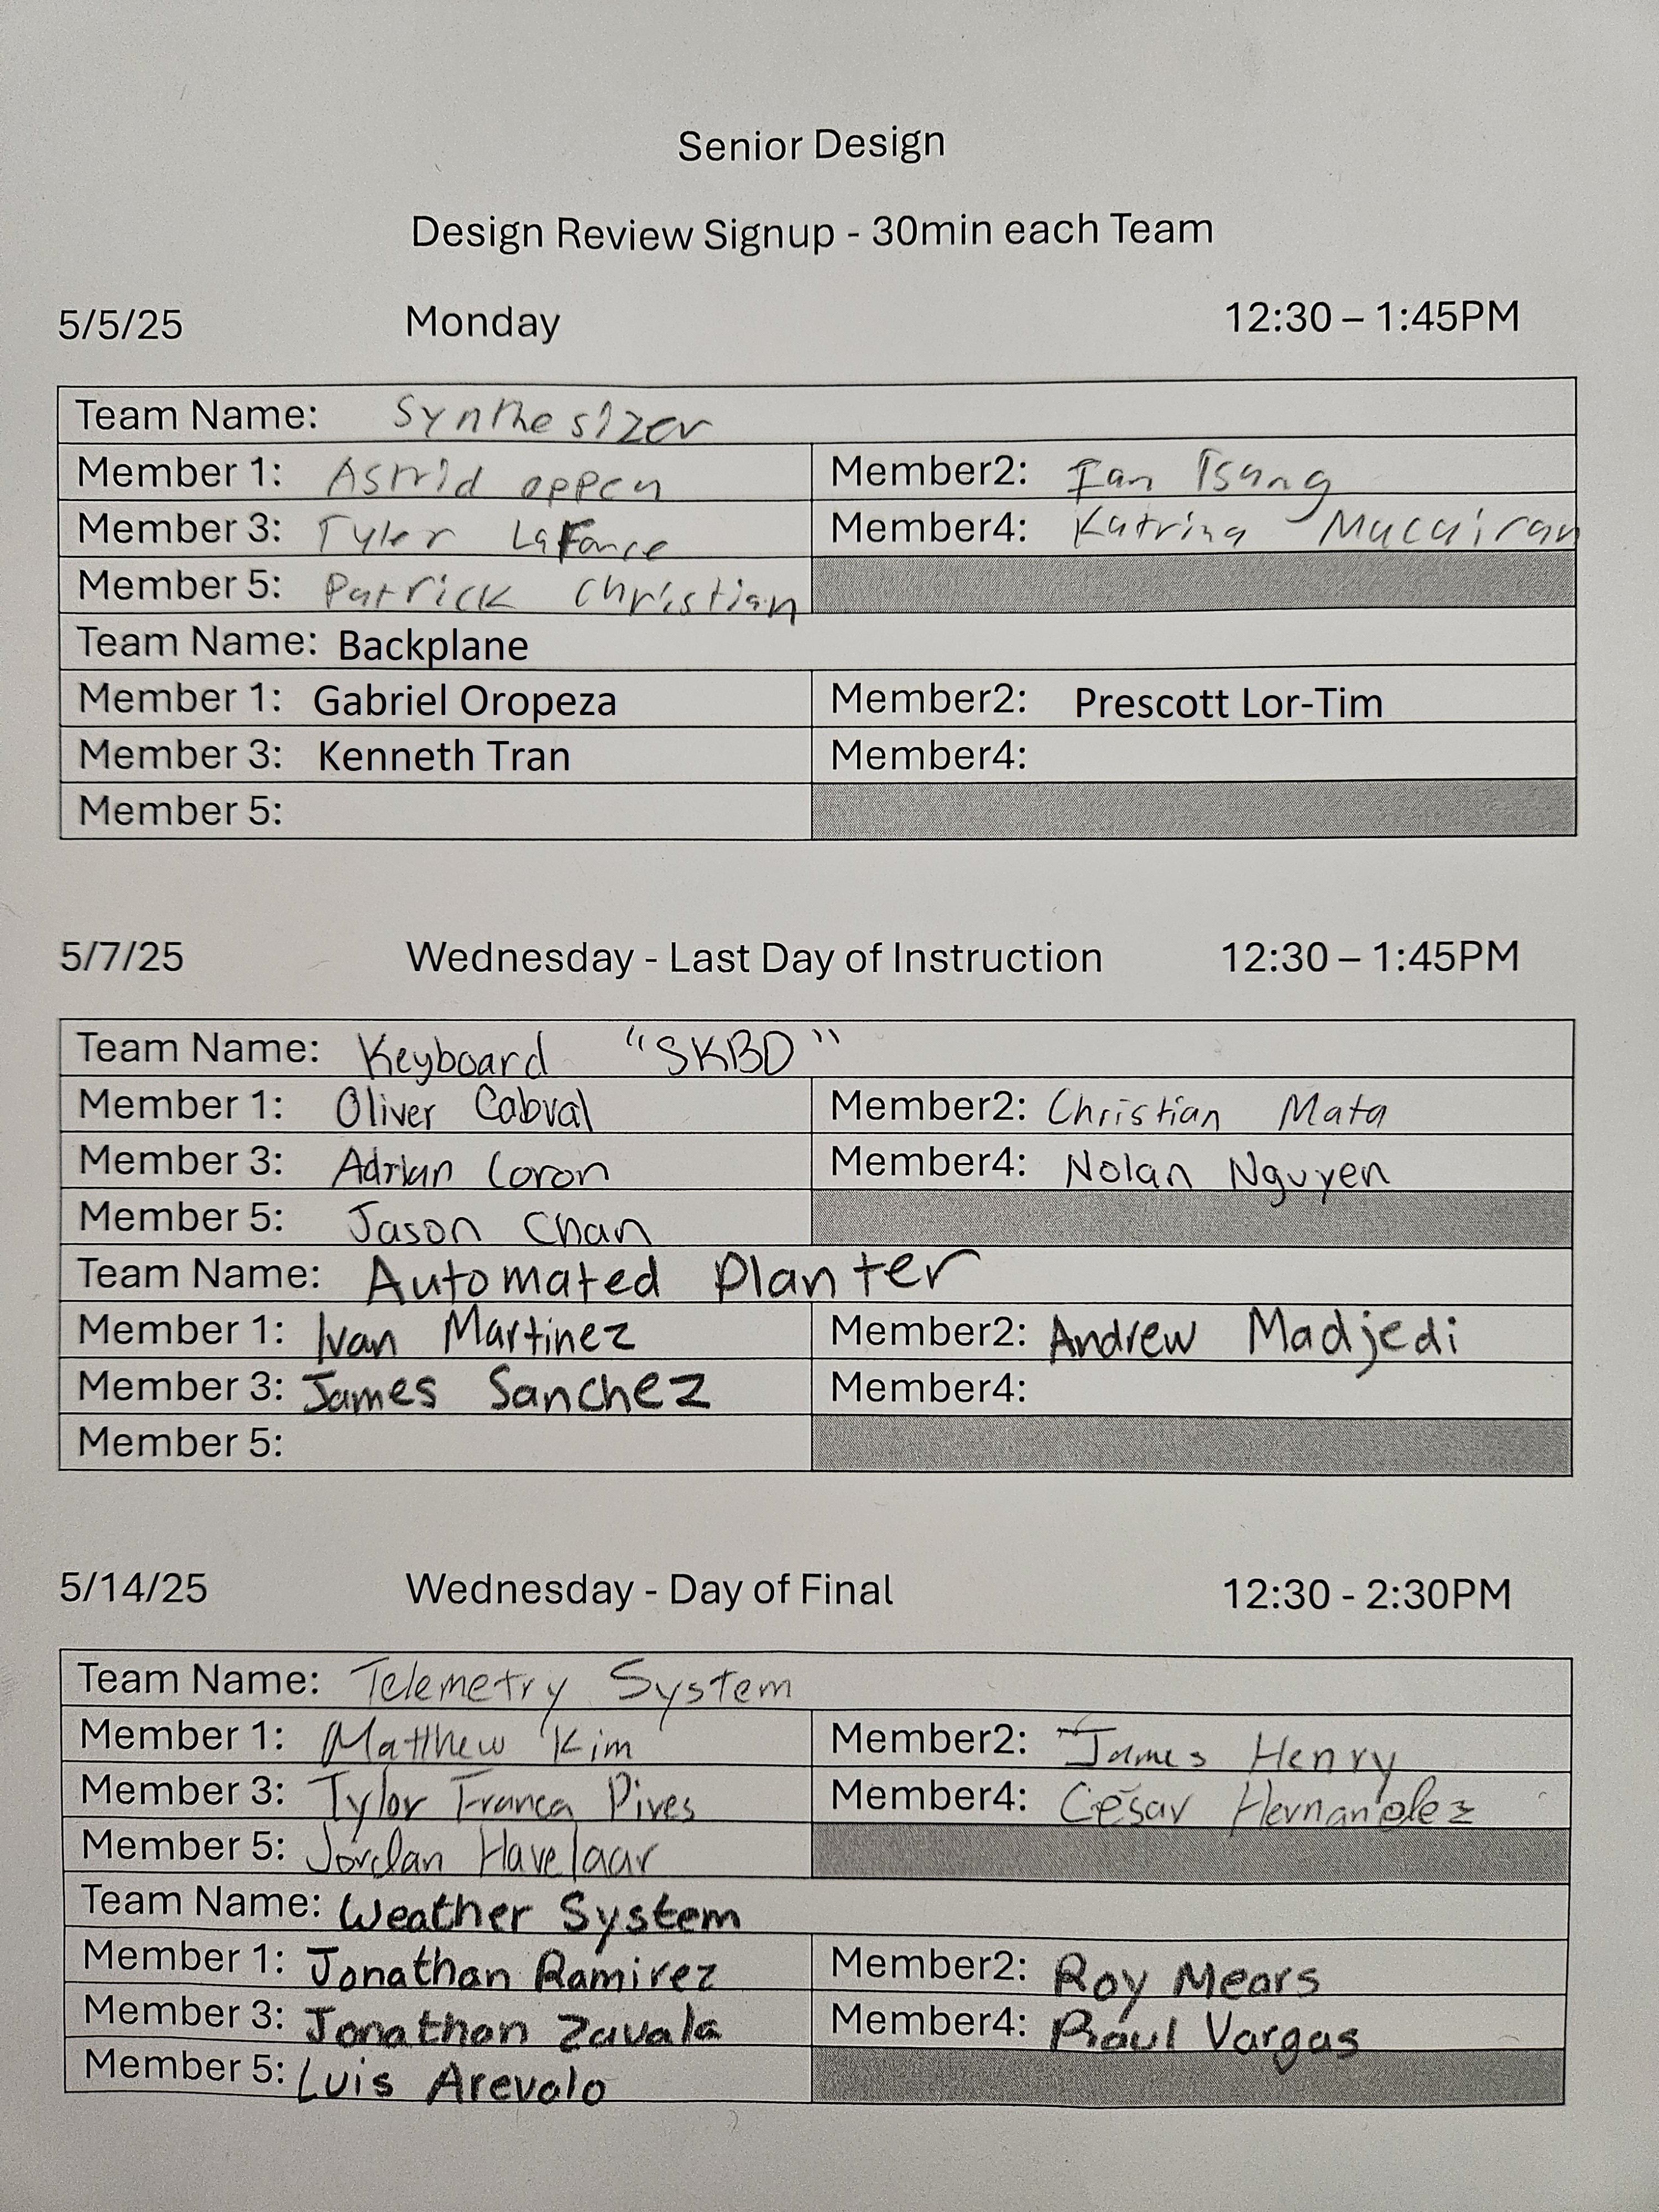 Senior Design
Design Review Signup - 30min each Team
5/5/25 Monday 12:30 – 1:45PM
Team Name: Synthesizer
Member 1: Astrid oppen Member2: Ian Tsang
Member 3: Tyler LaFance Member4: Katrina Macairan
Member 5: Patrick Christian
Team Name: Backplane
Member 1: Gabriel Oropeza Member2: Prescott Lor-Tim
Member 3: Kenneth Tran Member4:
Member 5:
5/7/25 Wednesday - Last Day of Instruction 12:30 – 1:45PM
Team Name: Keyboard "SKBD"
Member 1: Oliver Cabral Member2: Christian Mata
Member 3: Adrian Coron Member4: Nolan Nguyen
Member 5: Jason Chan
Team Name: Automated Planter
Member 1: Ivan Martinez Member2: Andrew Madjedi
Member 3: James Sanchez Member4:
Member 5:
5/14/25 Wednesday - Day of Final 12:30 - 2:30PM
Team Name: Telemetry System
Member 1: Matthew Kim Member2: James Henry
Member 3: Tylor Franca Pires Member4: César Hernandez
Member 5: Jordan Havelaar
Team Name: Weather System
Member 1: Jonathan Ramirez Member2: Roy Mears
Member 3: Jonathan Zavala Member4: Raul Vargas
Member 5: Luis Arevalo